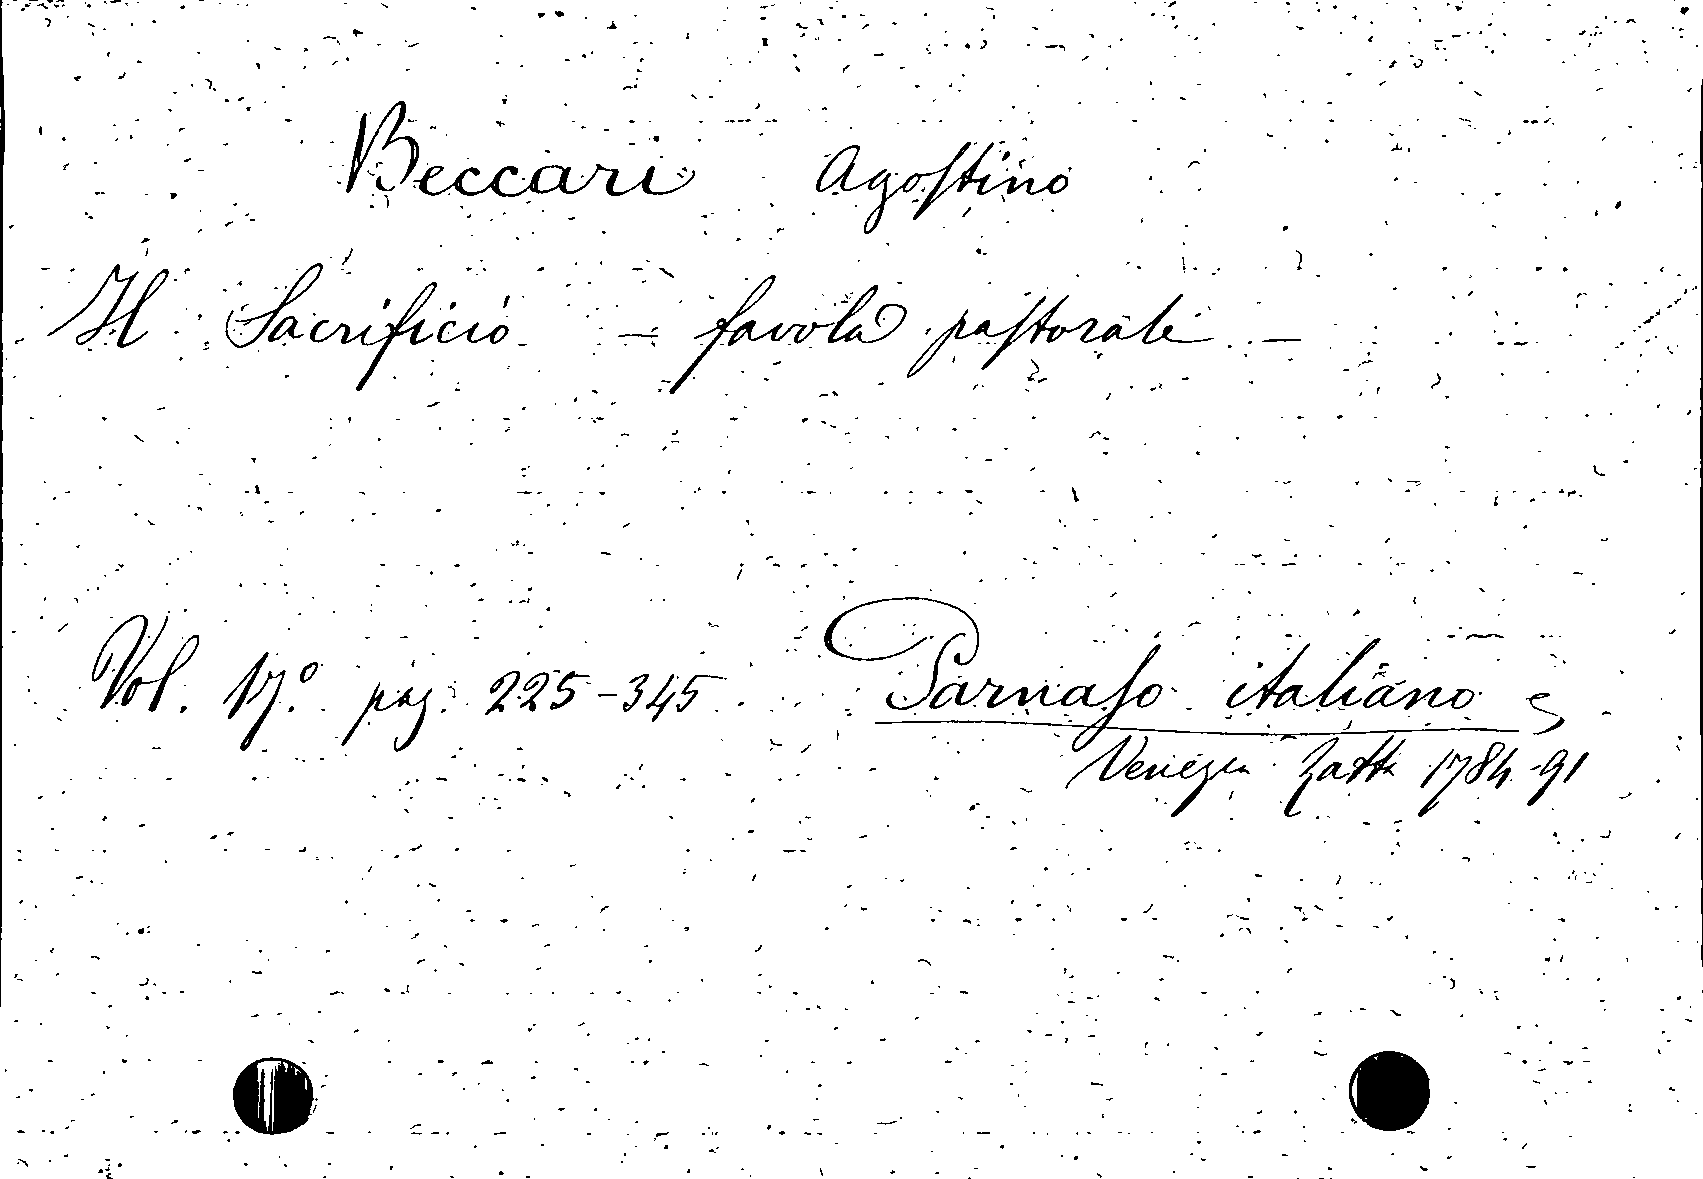 Beccari Agostino
Il Sacrificio - favola pastorale -
Vol. 17.° pag. 225-345 Parnaso italiano
Venezia Zatta 1784-91